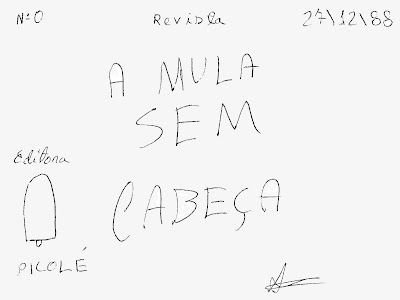 Nº 0 Revista 27\12\88
A MULA
SEM
Editora
CABEÇA
PICOLÉ